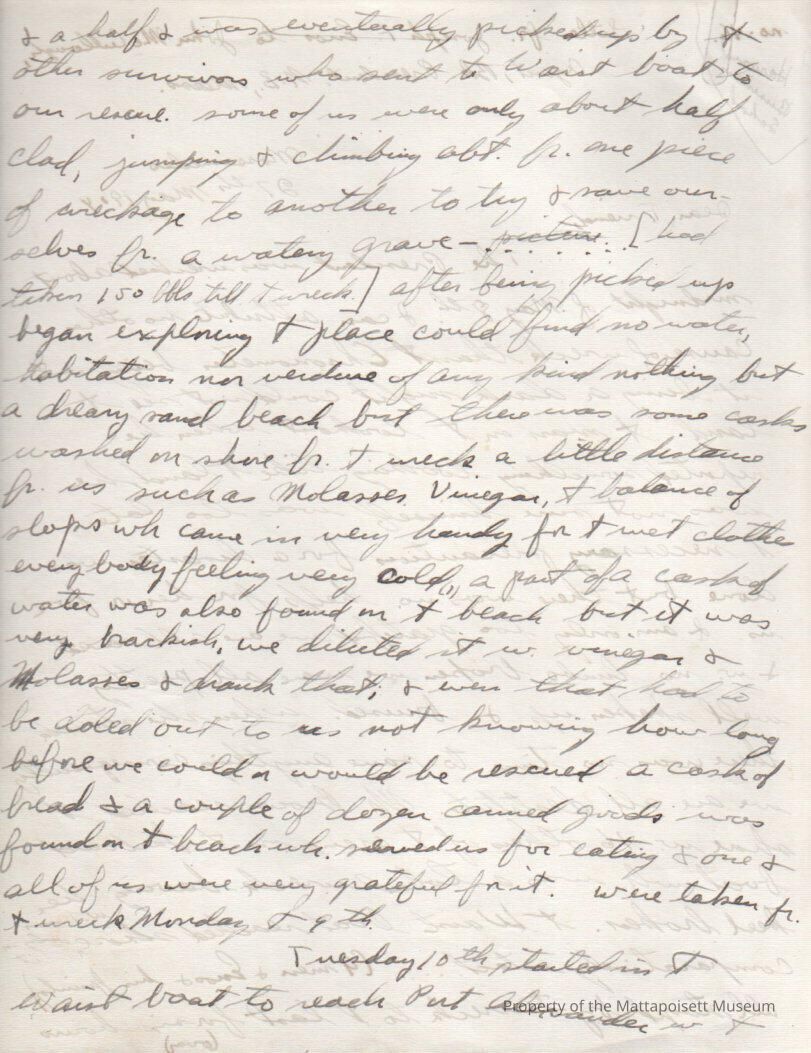 & a half & was eventually picked up by t
other survivors who sent t Waist boat to
our rescue. some of us were only about half
clad, jumping & climbing abt. fr. one piece
of wreckage to another to try & save our-
selves fr. a watery grave — picture. [had
taken 150 bbls till t wreck.] after being picked up
began exploring t place could find no water,
habitation nor verdure of any kind nothing but
a dreary sand beach but there was some casks
washed on shore fr. t wreck a little distance
fr. us such as Molasses, Vinegar, t balance of
slops wh came in very handy for t wet clothes
every body feeling very cold, a part of a cask of
water was also found on t beach but it was
very brackish, we diluted it w. vinegar &
Molasses & drank that, & even that had to
be doled out to us not knowing how long
before we could or would be rescued a cask of
bread & a couple of dozen canned goods was
found on t beach wh. served us for eating & one &
all of us were very grateful for it. were taken fr.
t wreck Monday t 9th.
Tuesday 10th started in t
waist boat to reach Port Alexander w t
(over)
Property of the Mattapoisett Museum